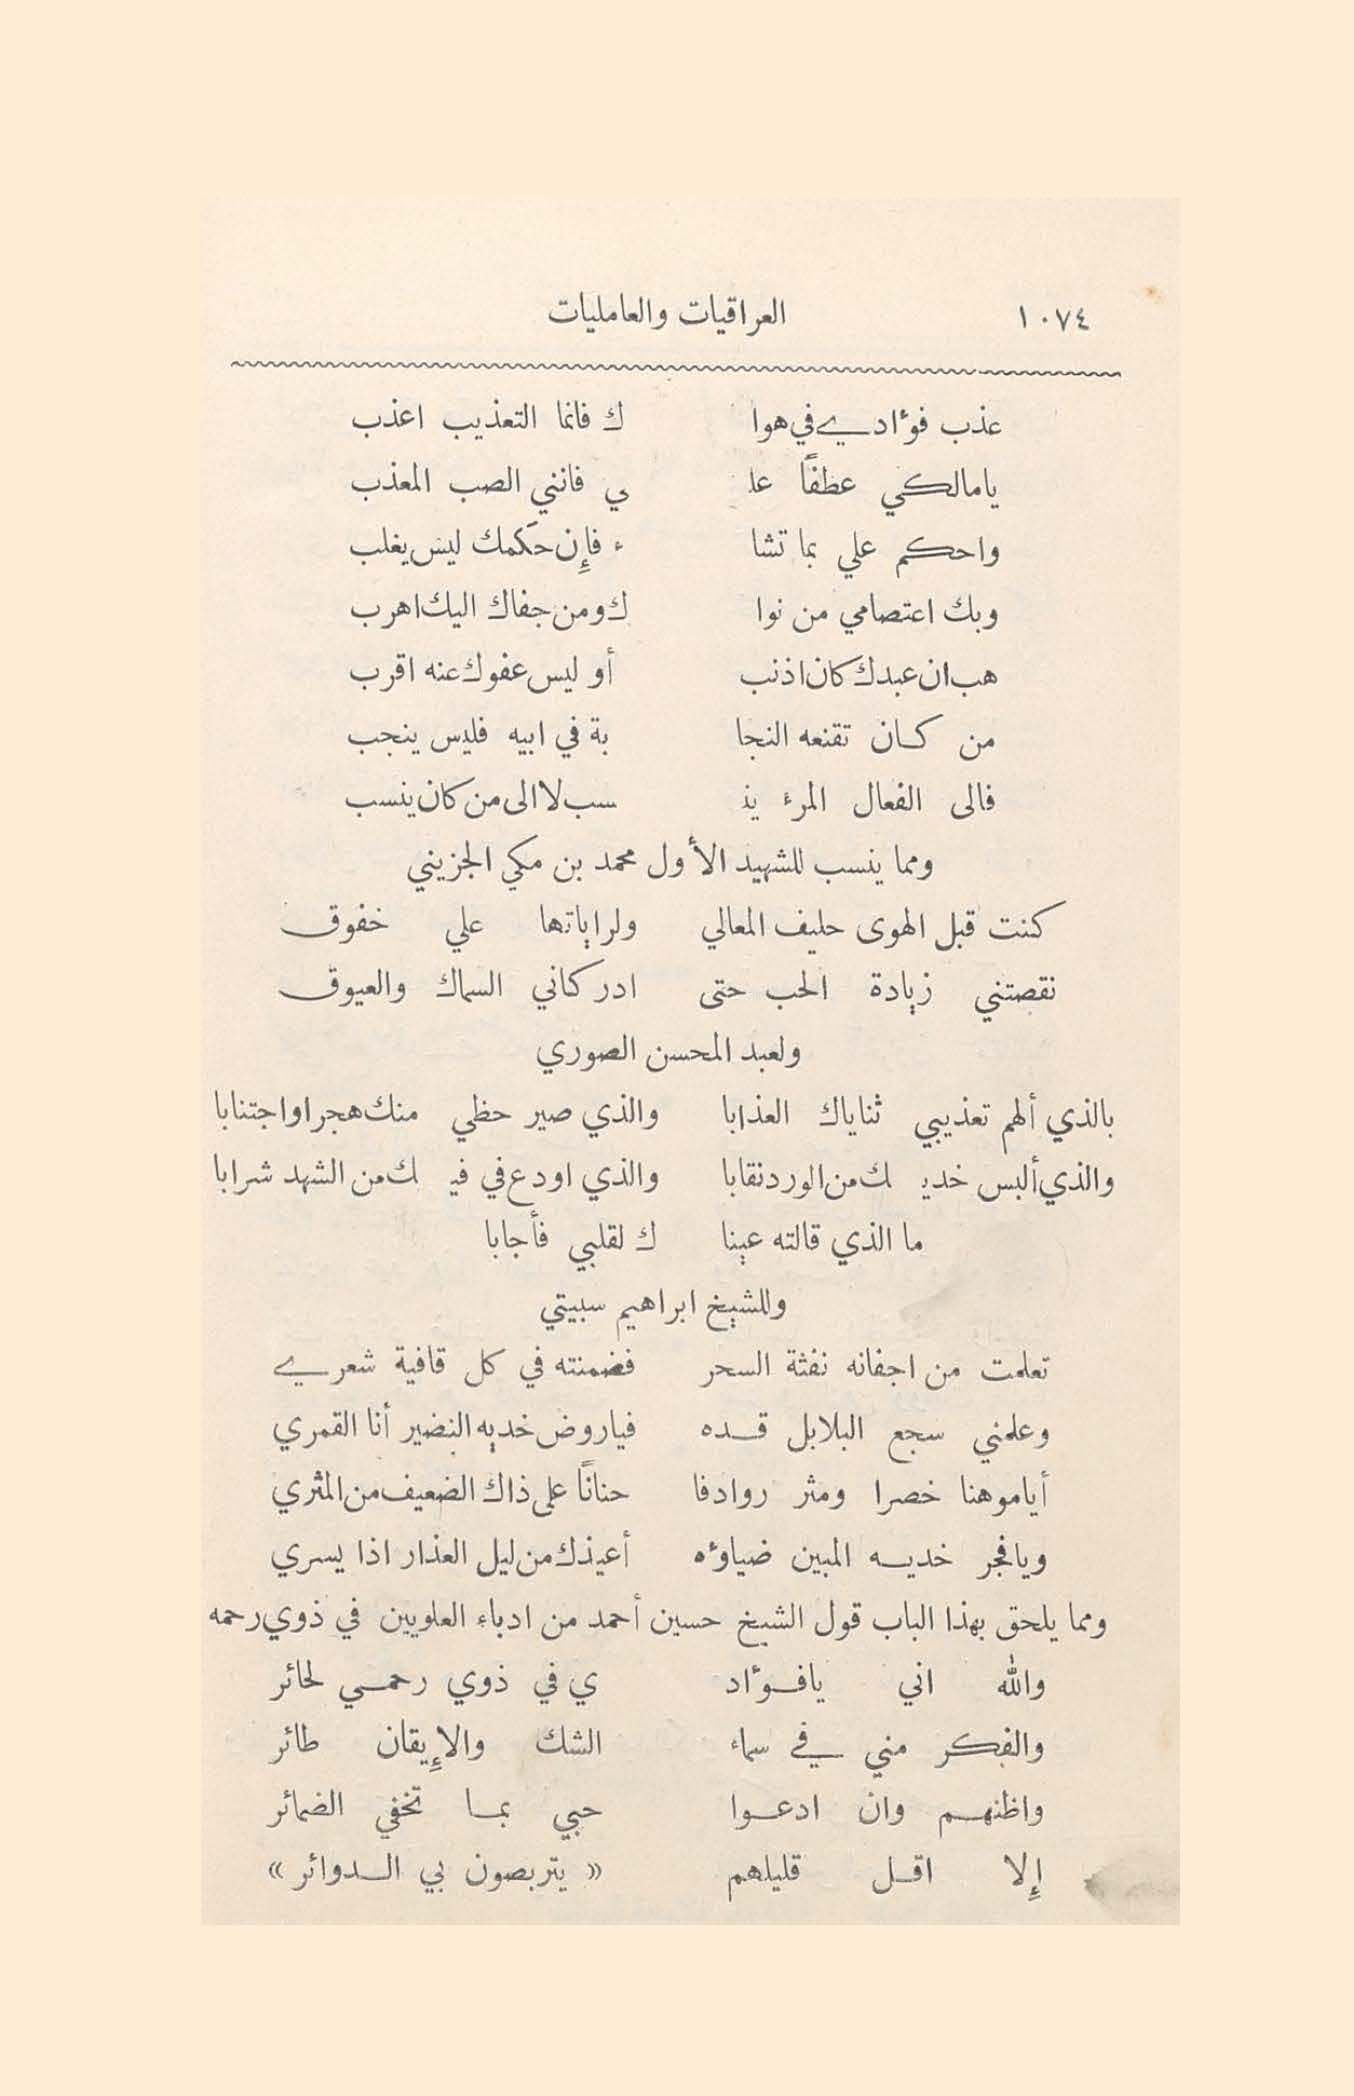 ١٠٧٤ العراقيات والعامليات
عذب فوٴادي في هوا ك فانما التعذيب اعذب
يامالكي عطفاً علـ ي فانني الصب المعذب
واحكم علي بما تشا ء فإِن حكمك ليس يغلب
وبك اعتصامي من نوا ك ومن جفاك اليك اهرب
هب ان عبدك كان اذنب أو ليس عفوك عنه اقرب
من كان تقنعه النجا بة في ابيه فليس ينجب
فالى الفعال المرء ينـ سب لا الى من كان ينسب
ومما ينسب للشهيد الأول محمد بن مكي الجزيني
كنت قبل الهوى حليف المعالي ولراياتها علي خفوق
نقصتني زيادة الحب حتى ادركاني السماك والعيوق
ولعبد المحسن الصوري
بالذي ألهم تعذيبي ثناياك العذابا والذي صير حظي منك هجرا واجتنابا
والذي ألبس خديـ ك من الورد نقابا والذي اودع في فيـ ك من الشهد شرابا
ما الذي قالته عينا ك لقلبي فأجابا
وللشيخ ابراهيم سبيتي
تعلمت من اجفانه نفثة السحر فضمنته في كل قافية شعري
وعلمني سجع البلابل قده فياروض خديه النضير أنا القمري
أياموهنا خصرا ومثر روادفا حنانًا على ذاك الضعيف من المثري
ويافجر خديه المبين ضياوٴه أعيذك من ليل العذار اذا يسري
ومما يلحق بهذا الباب قول الشيخ حسين أحمد من ادباء العلويين في ذوي رحمه
والله اني يافوٴاد ي في ذوي رحمي لحائر
والفكر مني في سماء الشك والإيقان طائر
واظنهم وان ادعوا حبي بما تخفي الضمائر
إِلا اقل قليلهم « يتربصون بي الدوائر »